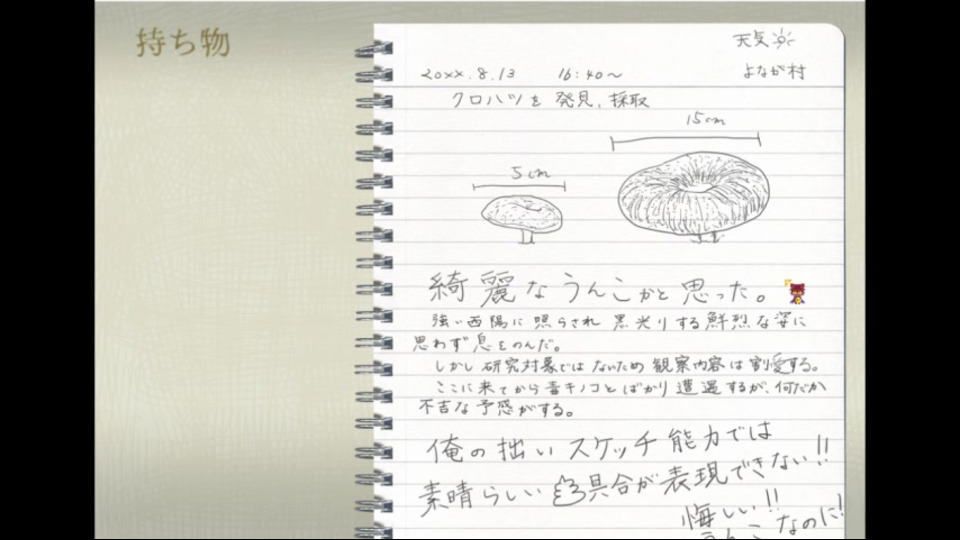 持ち物
天気
20xx.8.13 16:40~ よなが村
クロハツを発見、採取
5cm
15cm
綺麗なうんこかと思った。
強い西陽に照らされ黒光りする鮮烈な姿に
思わず息をのんだ。
しかし研究対象ではないため観察内容は割愛する。
ここに来てから毒キノコとばかり遭遇するが、何だか
不吉な予感がする。
俺の拙いスケッチ能力では
素晴らしい具合が表現できない!!
悔しい!!
なのに!